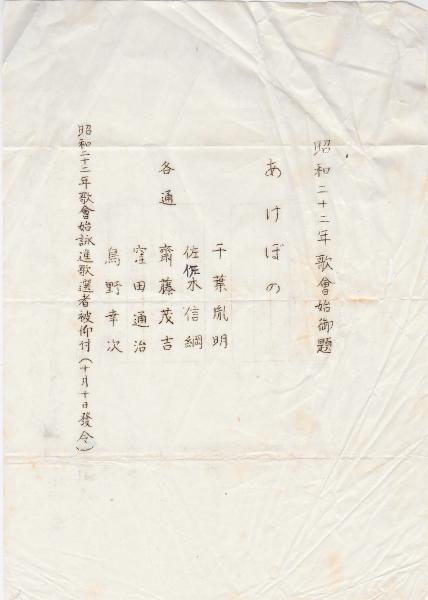 昭和二十二年歌會始御題
あけぼの
千葉胤明
佐佐木信綱
各通 齋藤茂吉
窪田通治
鳥野幸次
昭和二十二年歌會始詠進歌選者被仰付(十月十日發令)